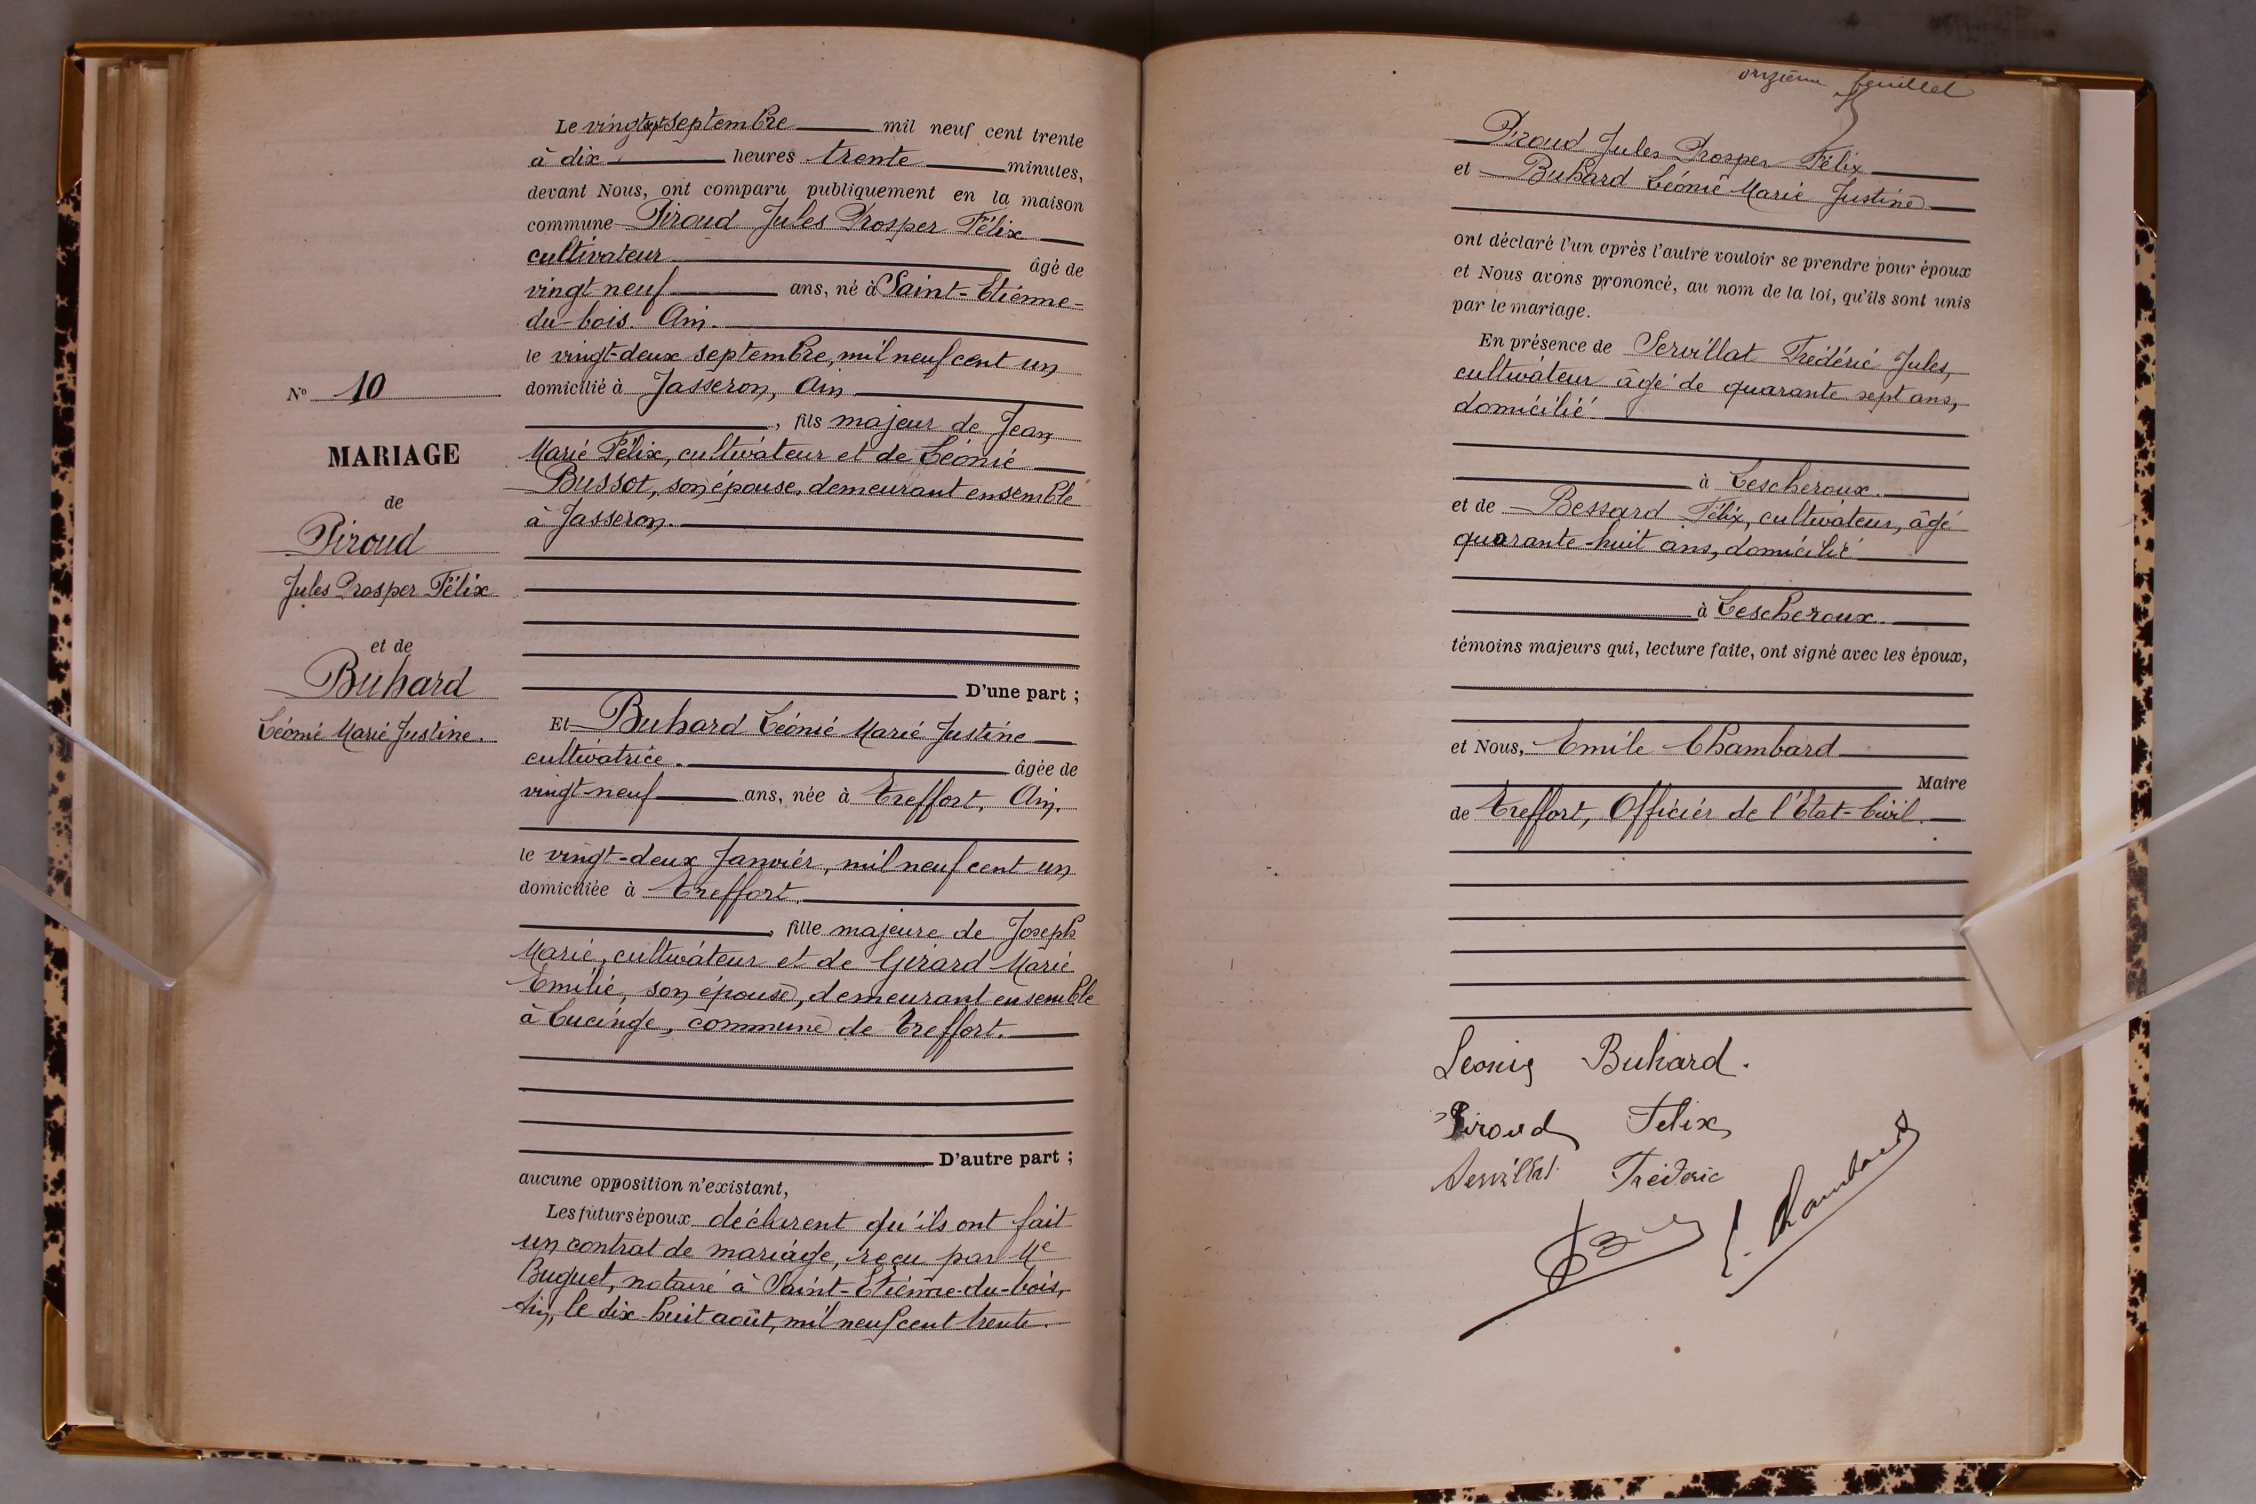 N° 10
MARIAGE
de
Piroud
Jules Prosper Félix
et de
Buhard
Léonie Marie Justine.
Le vingt sept septembre mil neuf cent trente
à dix heures trente minutes,
devant Nous, ont comparu publiquement en la maison
commune Piroud Jules Prosper Félix
cultivateur âgé de
vingt neuf ans, né à Saint-Etienne-
du-bois. Ain.
le vingt-deux septembre, mil neuf cent un
domicilié à Jasseron, Ain
, fils majeur de Jean
Marie Félix, cultivateur et de Léonie
Bussot, son épouse, demeurant ensemble
à Jasseron.
D'une part ;
Et Buhard Léonie Marie Justine
cultivatrice. âgée de
vingt-neuf ans, née à Treffort, Ain.
le vingt-deux Janvier, mil neuf cent un
domiciliée à Treffort.
, fille majeure de Joseph
Marie, cultivateur et de Girard Marie
Emilie, son épouse, demeurant ensemble
à Cucinge, commune de Treffort.
D'autre part ;
aucune opposition n'existant,
Les futurs époux déclarent qu'ils ont fait
un contrat de mariage, reçu par Me
Buguet, notaire à Saint-Etienne-du-bois,
Ain, le dix-huit août, mil neuf cent trente.
onzième feuillet
Piroud Jules Prosper Félix
et Buhard Léonie Marie Justine
ont déclaré l'un après l'autre vouloir se prendre pour époux
et Nous avons prononcé, au nom de la loi, qu'ils sont unis
par le mariage.
En présence de Servillat Frédéric Jules,
cultivateur âgé de quarante sept ans,
domicilié
à Lescheroux.
et de Bessard Félix, cultivateur, âgé
quarante-huit ans, domicilié
à Lescheroux.
témoins majeurs qui, lecture faite, ont signé avec les époux,
et Nous, Emile Chambard
Maire
de Treffort, Officier de l'Etat-Civil.
Leonie Buhard.
Piroud Felix
Servillat Frédéric
E. Chambard